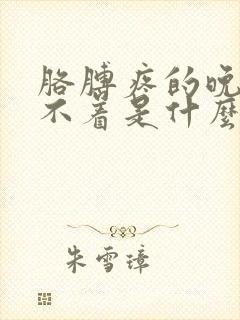 胳膊疼的晚
不着是什麼
朱雪璋